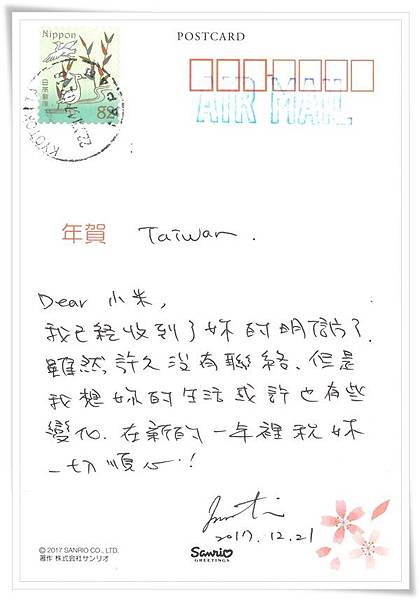 Nippon
82
POSTCARD
AIR MAIL
年賀 Taiwan.
Dear 小米,
我已經收到了妳的明信片了.
雖然許久沒有聯絡、但是
我想妳的生活或許也有些
變化. 在新的一年裡祝妳
一切順心!
2017.12.21
© 2017 SANRIO CO., LTD.
著作 株式会社サンリオ
Sanrio
GREETINGS